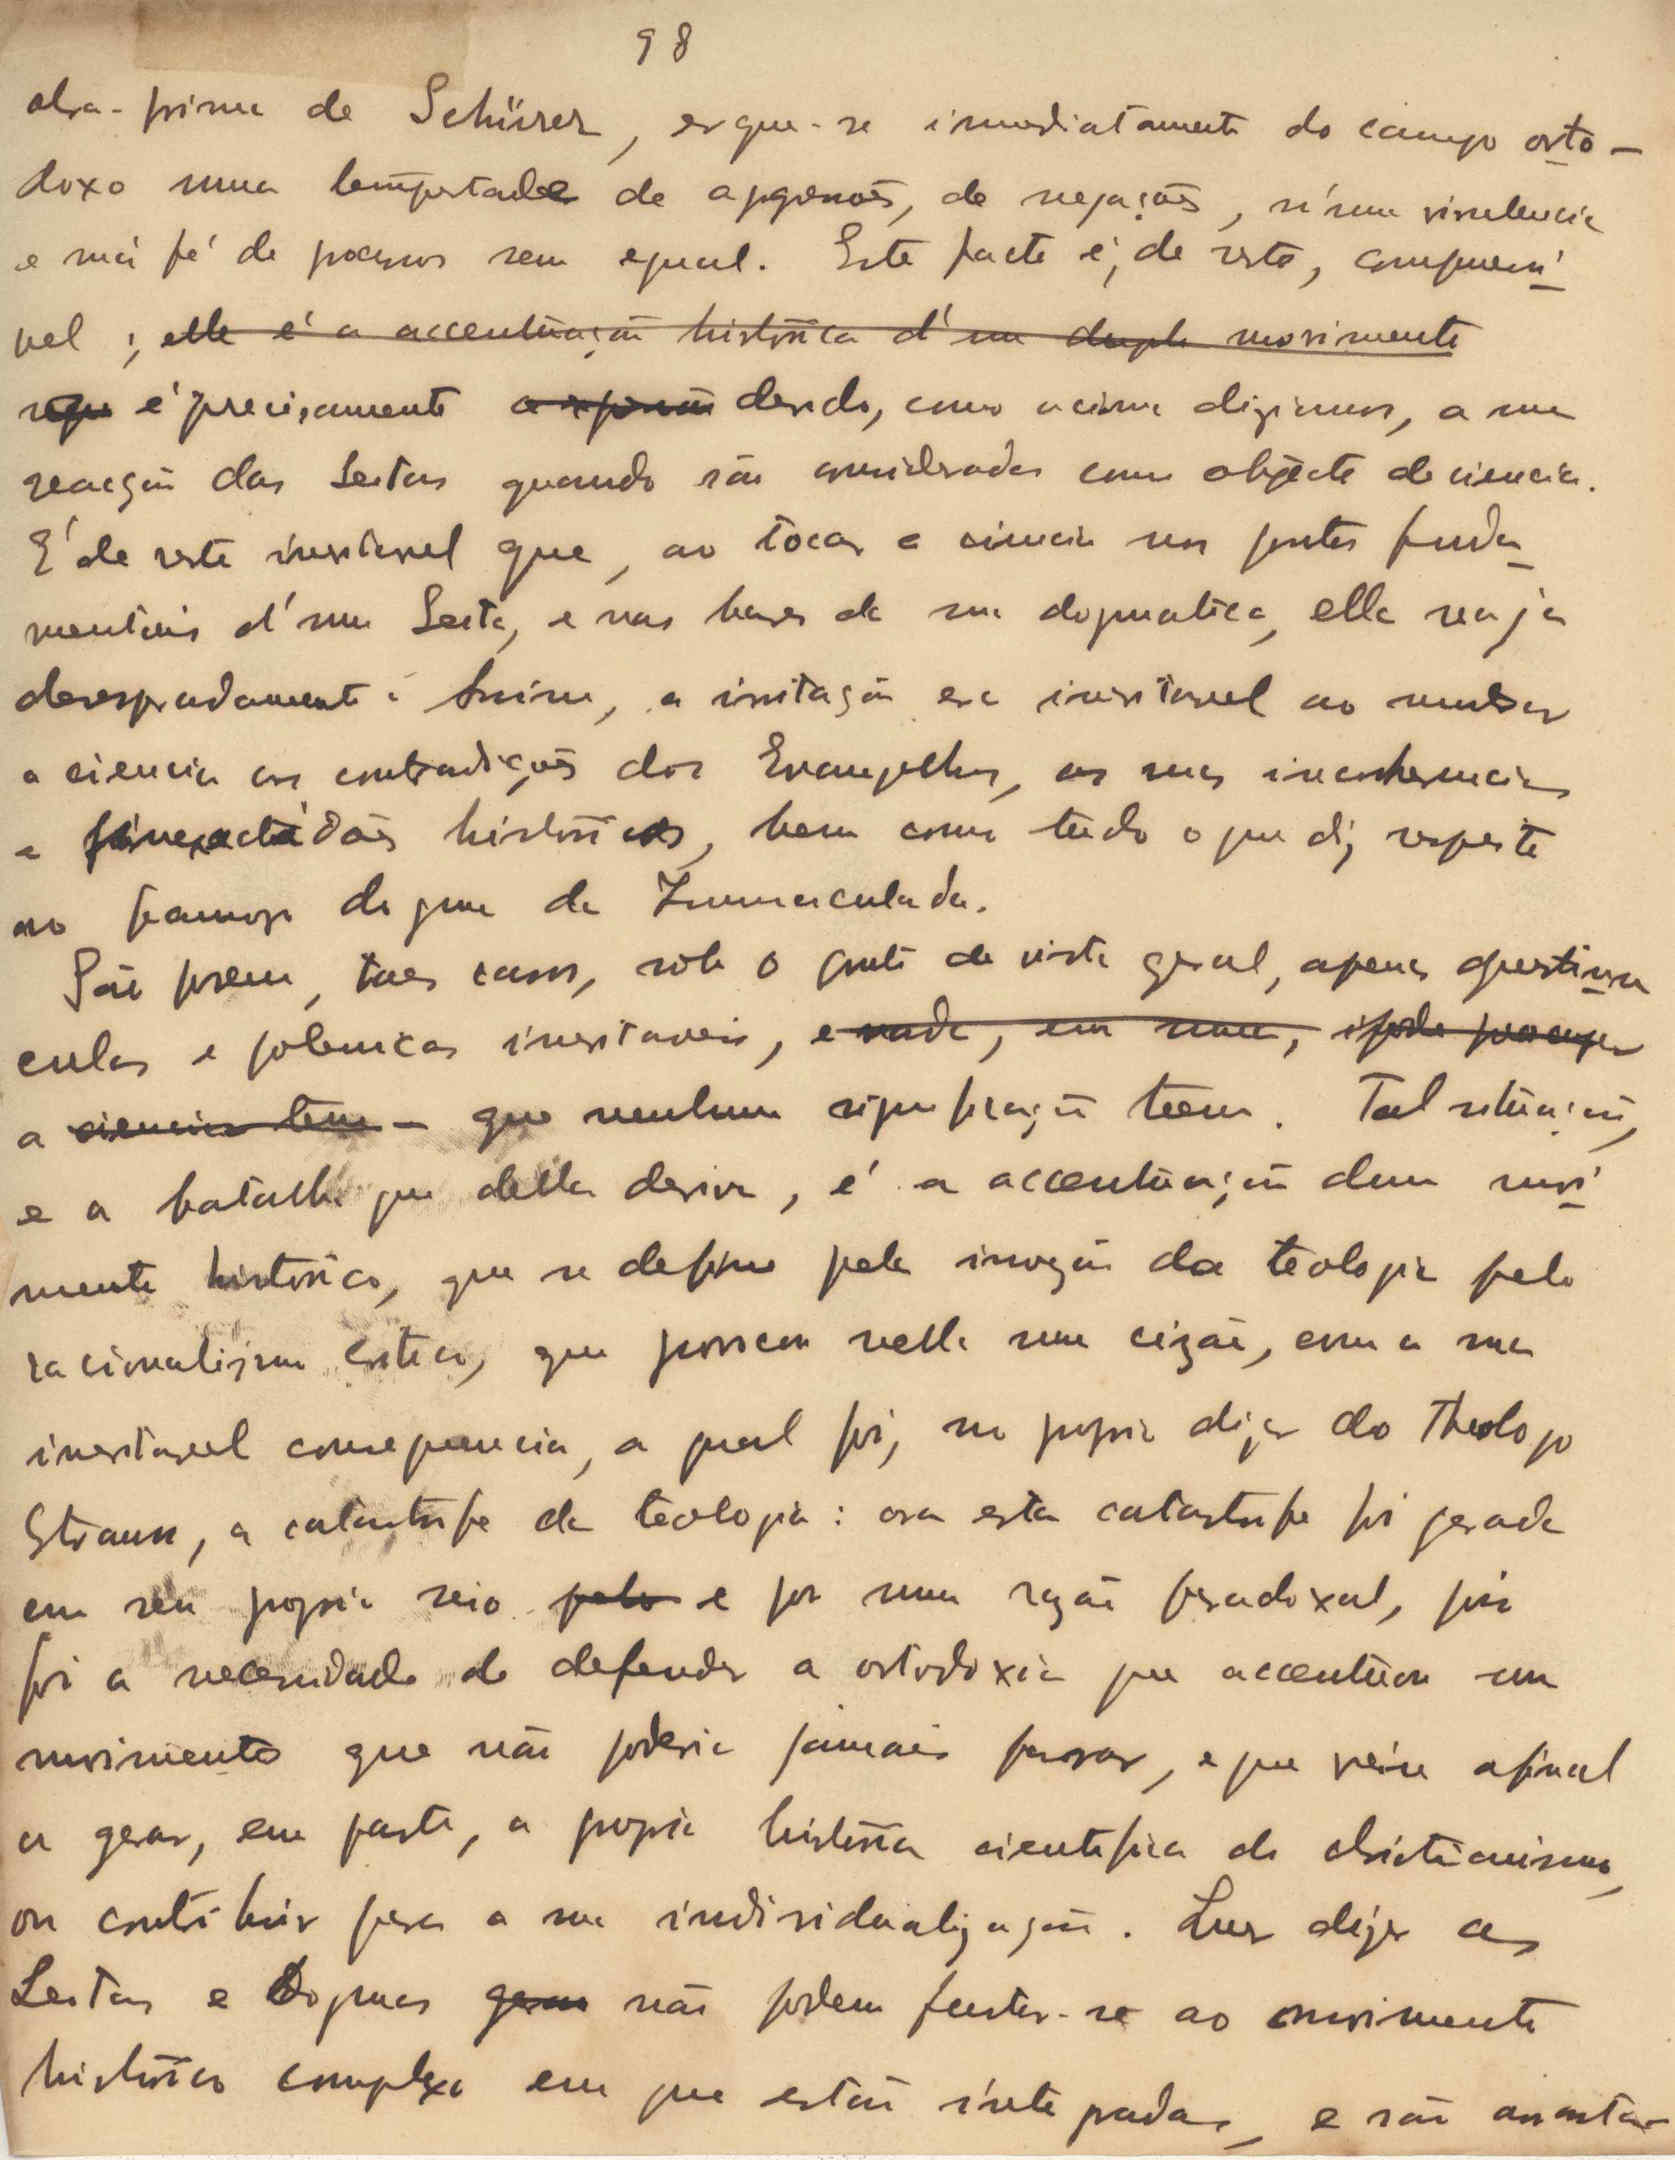 98
obra-prima de Schürer, ergue-se immediatamente do campo orto-
doxo uma tempestade de opposições, de negações, n'uma virulencia
e má fé de processos sem egual. Este facto é, de resto, comprehensi-
vel; elle é a accentuação historica d'um duplo movimento
é precisamente devido, como acima dizimos, a uma
reacção das Seitas quando são consideradas como objecto de sciencia.
É de resto inevitavel que, ao tocar a ciencia nos pontos funda-
mentais d'uma Seita, e nas bases da sua dogmatica, ella reaja
desesperadamente: assim, a irritação era inevitavel ao mostrar
a ciencia as contradições dos Evangelhos, as suas incoherencias
e inexactidões historicas, bem como tudo o que diz respeito
ao famoso dogma da Immaculada.
São porem, taes casos, sob o ponto de vista geral, apenas questiun-
culas e polemicas inevitaveis, e nada, em suma,
a ciencia tem - que nenhuma significação teem. Tal situação,
e a batalha que della deriva, é a accentuação dum movi-
mento historico, que se define pela invazão da teologia pelo
racionalismo critico, que provocou nella uma cizão, com a sua
inevitavel consequencia, a qual foi, no proprio dizer do Theologo
Strauss, a catastrofe da teologia: ora esta catastrofe foi gerada
em seu proprio seio pelo e por uma razão paradoxal, pois
foi a necessidade de defender a ortodoxia que accentuou um
movimento que não poderia jamais parar, e que veiu afinal
a gerar, em parte, a propria historia cientifica do christianismo,
ou contribuir para a sua individualização. Quer dizer as
Seitas e Dogmas não podem furtar-se ao movimento
historico complexo em que estão integradas, e são arrasta-